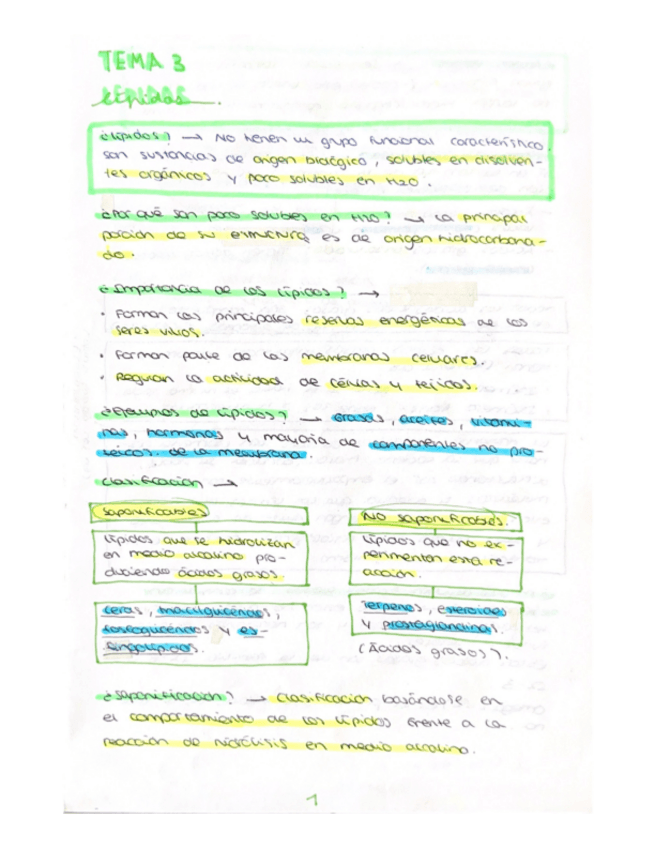 TEMA 3
LÍPIDOS
Lípidos.
¿Lípidos? → NO tienen un grupo funcional característico.
son sustancias de origen biológico, solubles en disolven-
tes orgánicos y poco solubles en H2O.
¿Por qué son poco solubles en H2O? → La principal
porción de su estructura es de origen hidrocarbona-
do.
¿Importancia de los lípidos? →
· Forman las principales reservas energéticas de los
seres vivos.
· Forman parte de las membranas celulares.
· Regulan la actividad de células y tejidos.
¿Ejemplos de lípidos? → Grasas, aceites, vitami-
nas, hormonas y mayoría de componentes no pro-
teicos de la membrana.
Clasificación →
Saponificables
NO saponificables.
Lípidos que se hidrolizan
en medio alcalino pro-
duciendo ácidos grasos.
Lípidos que no ex-
perimentan esta re-
acción.
Ceras, triacilglicéridos,
fosfoglicéridos y es-
fingolípidos.
Terpenos, esteroides
y prostaglandinas.
(Ácidos grasos?).
¿Saponificación? → Clasificación basándose en
el comportamiento de los lípidos frente a la
reacción de hidrólisis en medio alcalino.
1